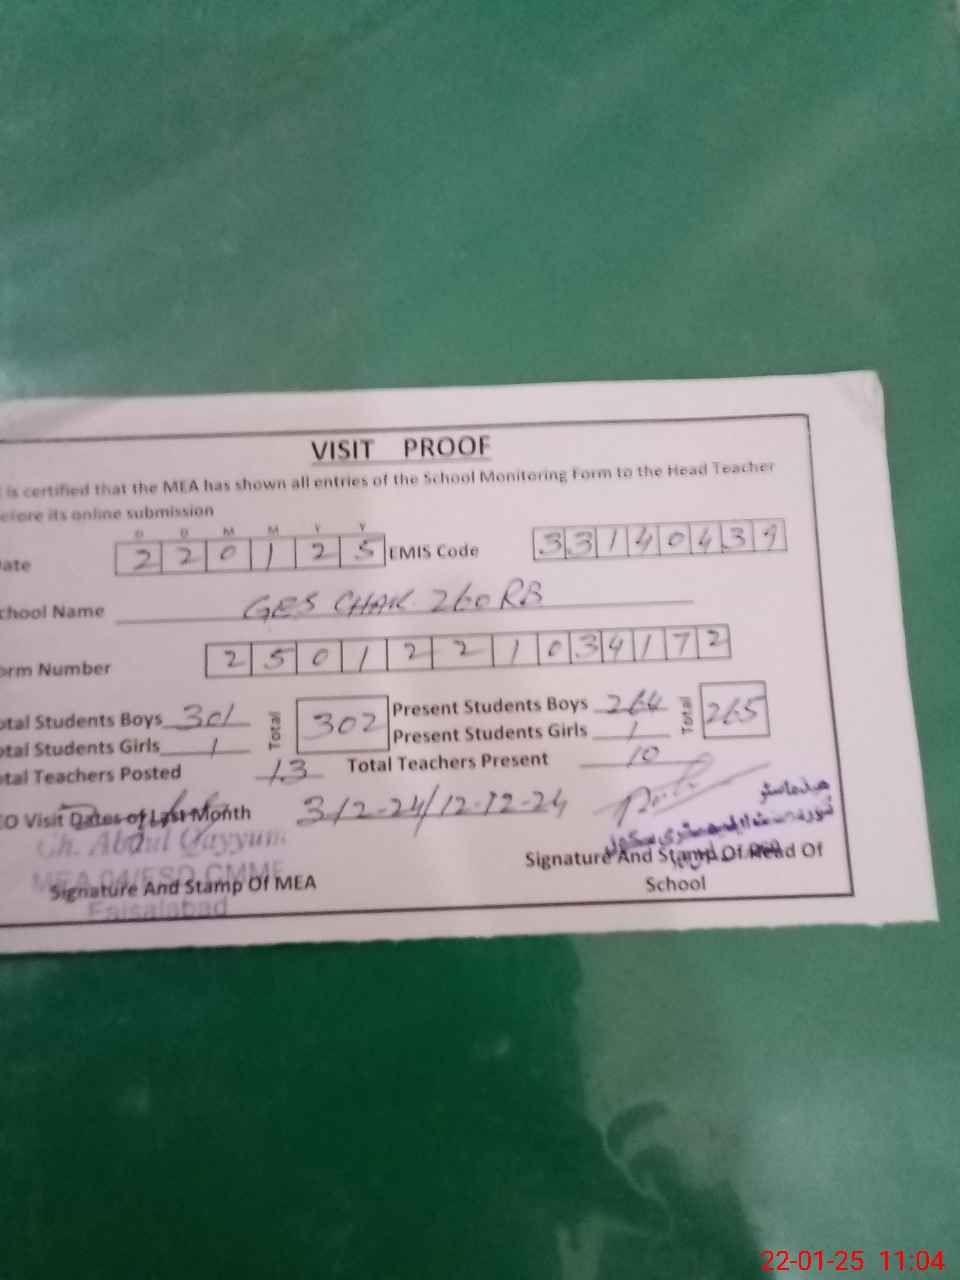 VISIT PROOF
is certified that the MEA has shown all entries of the School Monitoring Form to the Head Teacher
efore its online submission
D D M M Y Y
ate 2 2 0 1 2 5 EMIS Code 3 3 1 4 0 4 3 9
chool Name GES CHAK 260 RB
orm Number 2 5 0 1 2 2 1 0 3 4 1 7 2
otal Students Boys 301 Total 302 Present Students Boys 264 Total 265
otal Students Girls 1 Present Students Girls 1
otal Teachers Posted 13 Total Teachers Present 10
EO Visit Dates of Last Month 3/2-24/12-12-24
Ch. Abdul Qayyum
MEA 04/FSD CMMF
Faisalabad
Signature And Stamp Of MEA
ہیڈماسٹر
گورنمنٹ ایلیمنٹری سکول
Signature And Stamp Of Head Of
School
22-01-25 11:04